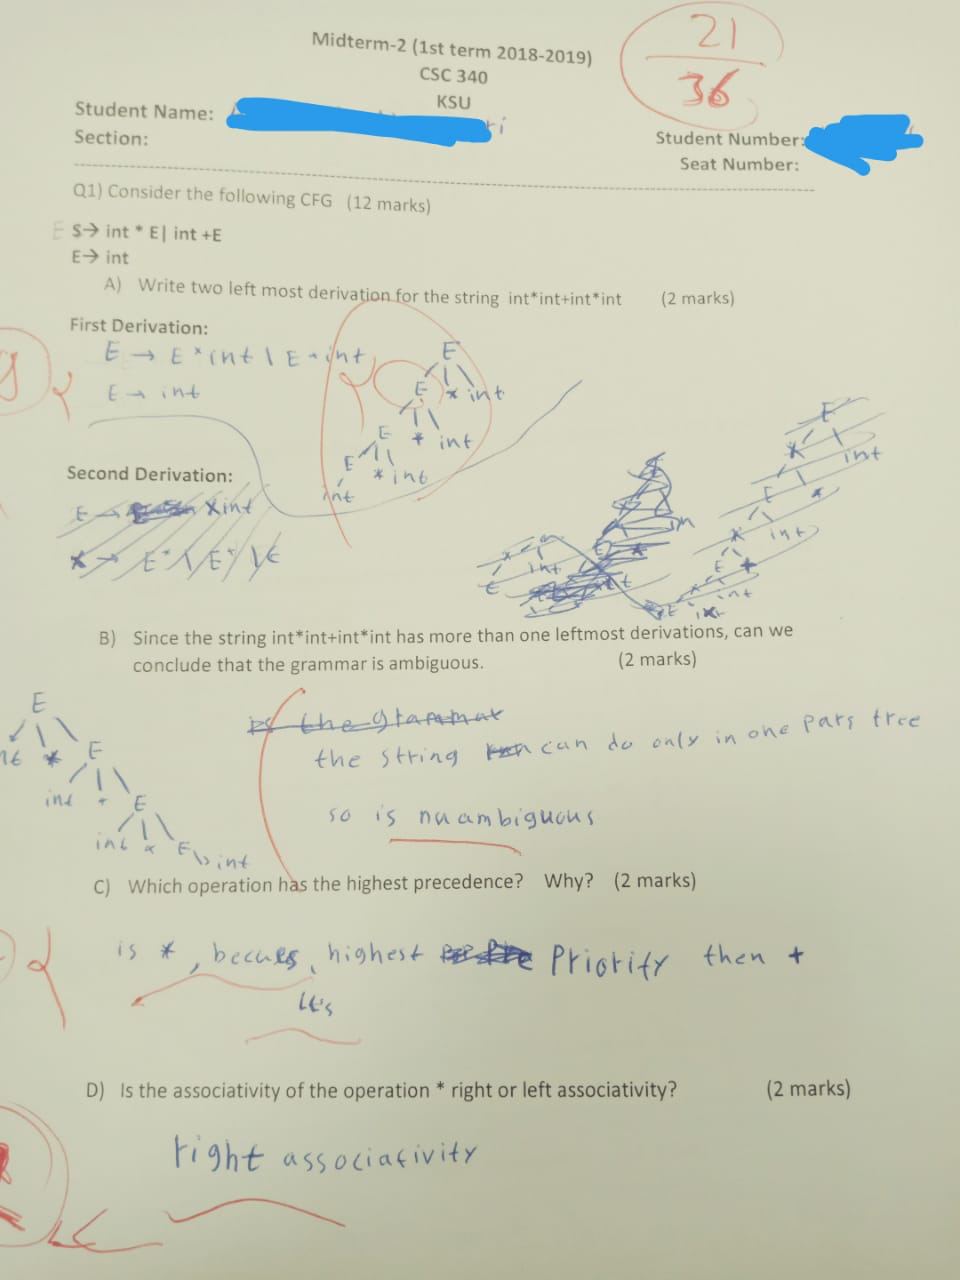 Midterm-2 (1st term 2018-2019)
CSC 340
KSU
21
36
Student Name:
ri
Section:
Student Number:
Seat Number:
Q1) Consider the following CFG (12 marks)
E S→ int * E| int +E
E→ int
A) Write two left most derivation for the string int*int+int*int (2 marks)
First Derivation:
E → E * int | E + int
E → int
E
E * int
E + int
E * int
int
Second Derivation:
E → X int
E
int
int
int
B) Since the string int*int+int*int has more than one leftmost derivations, can we
conclude that the grammar is ambiguous. (2 marks)
is the grammar
the string can do only in one pars tree
so is nuambiguous
E
* E
int + E
int * E
int
C) Which operation has the highest precedence? Why? (2 marks)
2
is *, becues highest Priority then +
it's
D) Is the associativity of the operation * right or left associativity? (2 marks)
right associativity